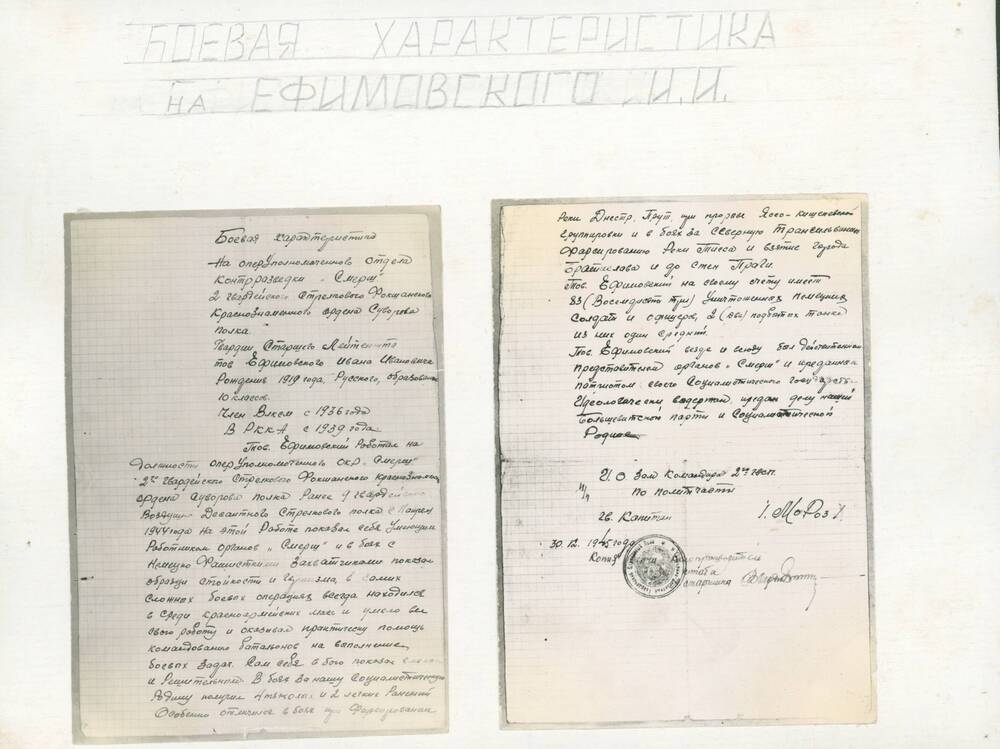 БОЕВАЯ ХАРАКТЕРИСТИКА
НА ЕФИМОВСКОГО И.И.
Боевая характеристика
На оперуполномоченного отдела
Контрразведки „Смерш"
2 гвардейского Стрелкового Фокшанского
Краснознаменного ордена Суворова
полка
Гвардии Старшего Лейтенанта
тов Ефимовского Ивана Ивановича
Рождения 1919 года, Русского, образован
10 классов.
Член Влксм с 1936 года
В РККА с 1939 года
Тов. Ефимовский Работал на
должности оперуполномоченного ОКР „Смерш"
2го гвардейского Стрелкового Фокшанского Краснознамен
ордена Суворова полка Ранее 9 гвардейского
Воздушно Десантного Стрелкового полка с
1944 года На этой Работе показал себя Умеющим
Работником органов „Смерш" и в боях с
Немецко Фашисткими Захватчиками показал
образцы стойкости и героизма, в самих
сложных боевых операциях всегда находился
в среди красноармейских масс и умело вел
свою работу и оказывал практическу помощь
командованию батальонов на выполнение
боевых задач. Сам себя в бою показал
и Решительном В боях за нашу Социалистическую
Родину получил 4 тяжолых и 2 легких Ранений
Особенно отличился в боях при Форсировании
Реки Днестр, Прут, при прорыве Ясско-кишеневской
группировки и в боях за Северную Трансильванию
Фарсированию Реки Тисса и взятие города
Братислова и до стен Праги.
Тов. Ефимовский на своему счету имеет
83 (Восемдисят три) Уничтоженых Немецких
Солдат и офицеров, 2 (два) подбитых танка
из них один средний.
Тов. Ефимовский везде и всюду был действительном
представителем органов „Смерш" и преданным
патриотом своего Социалистического государств
Идеологически выдержан, предан делу нашей
Большевитской парти и Социалистической
Родине
И.О Зам Командира 2го гвсп.
п/п по политчасти
Гв. Капитан /Мороз/
30.12.1945 года
Копия
старшина